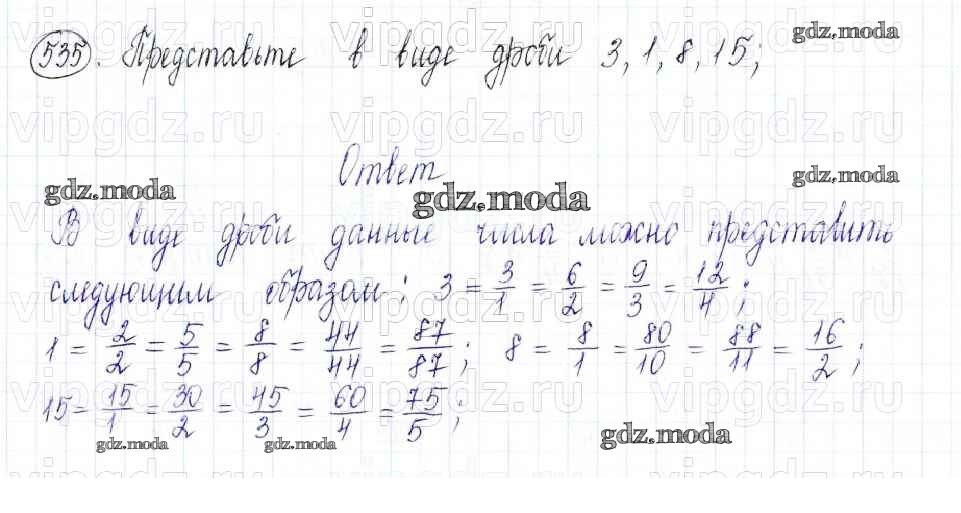 535. Представьте в виде дроби 3, 1, 8, 15;
gdz.moda
vipgdz.ru vipgdz.ru vipgdz.ru
Ответ
gdz.moda gdz.moda gdz.moda
В виде дроби данные числа можно представить
следующим образом; 3 = 3/1 = 6/2 = 9/3 = 12/4;
1 = 2/2 = 5/5 = 8/8 = 44/44 = 87/87; 8 = 8/1 = 80/10 = 88/11 = 16/2;
15 = 15/1 = 30/2 = 45/3 = 60/4 = 75/5;
gdz.moda gdz.moda gdz.moda